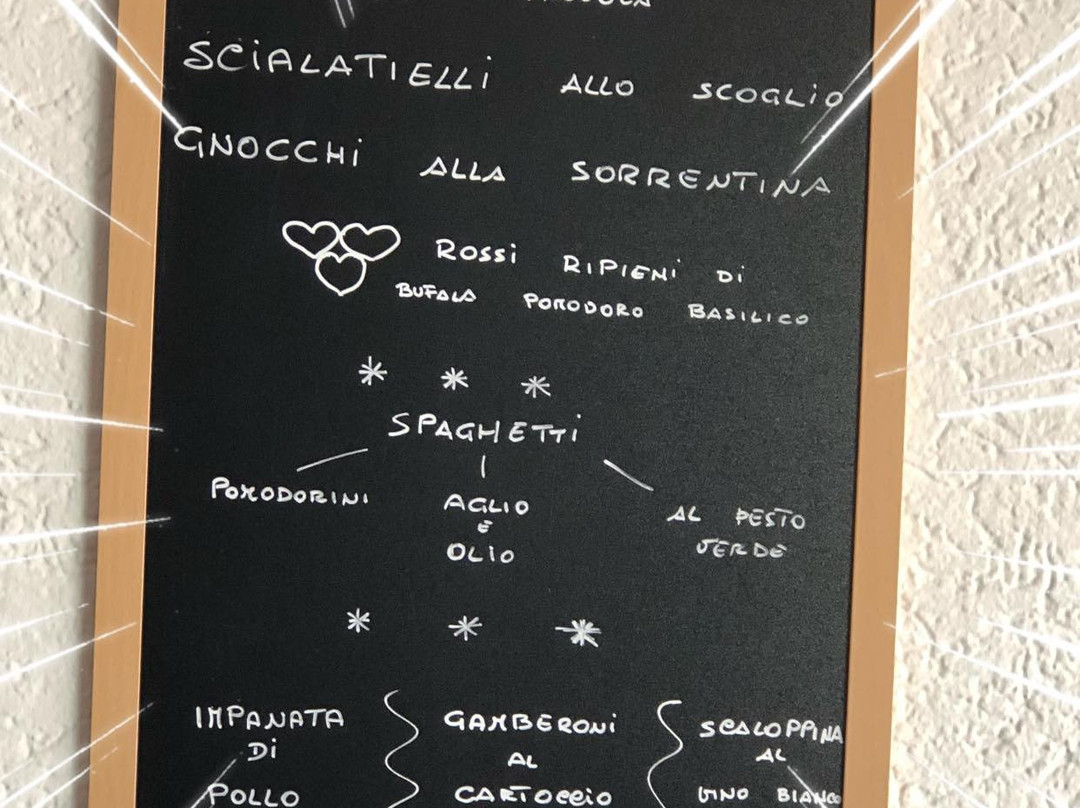 SCIALATIELLI ALLO SCOGLIO
GNOCCHI ALLA SORRENTINA
ROSSI RIPIENI DI
BUFALA POMODORO BASILICO
SPAGHETTI
POMODORINI
AGLIO
E
OLIO
AL PESTO
VERDE
IMPANATA
DI
POLLO
GAMBERONI
AL
CARTOCCIO
SCALOPPINA
AL
VINO BIANCO